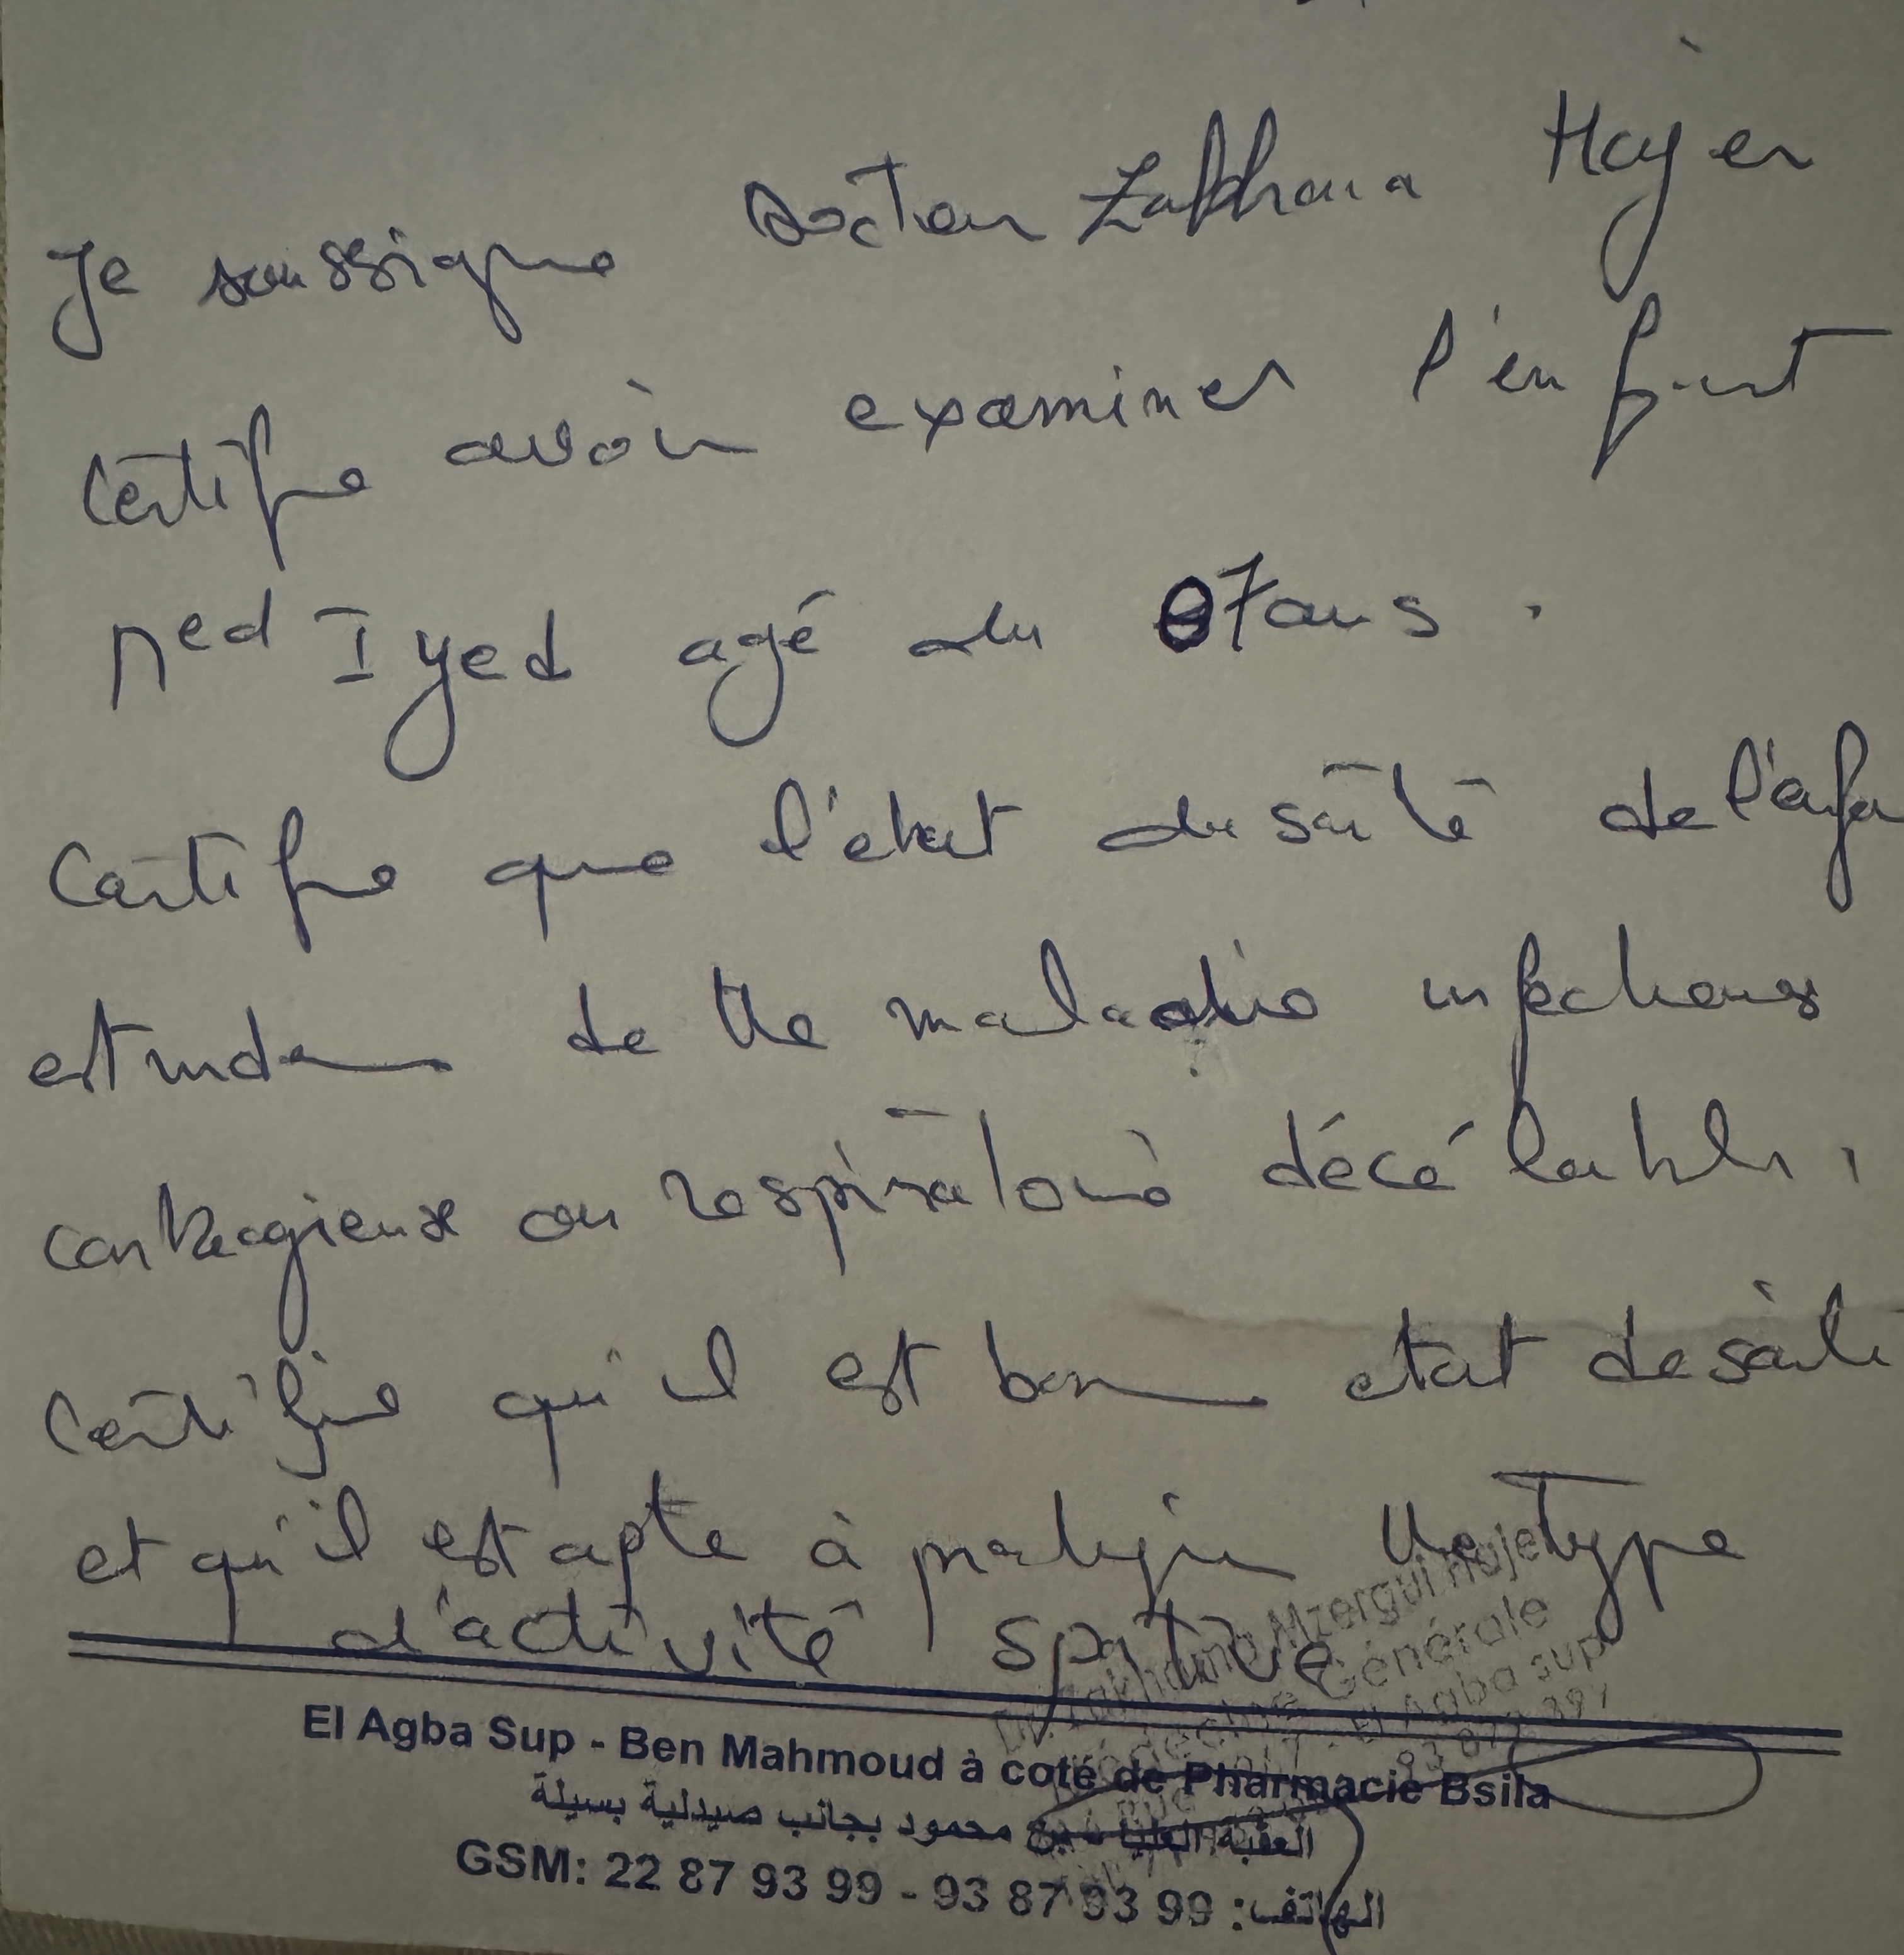 Je soussigne Docteur Zakhama Hajer
Certifie avoir examiner l'enfant
Med Iyed agé du 07 ans.
Certifie que l'état du santé de l'enfa
est indemne de tte maladie infectieuse
contagieuse ou respiratoire décélable,
Certifie qu'il est bon etat de santé
et qu'il est apte à pratiquer tte type
d'activité sportive
Mzergui Hajer
Générale
El Agba sup
El Agba Sup - Ben Mahmoud à coté de Pharmacie Bsila
العقبة العليا - بن محمود بجانب صيدلية بسيلة
GSM: 22 87 93 99 - 93 87 93 99 :الهاتف